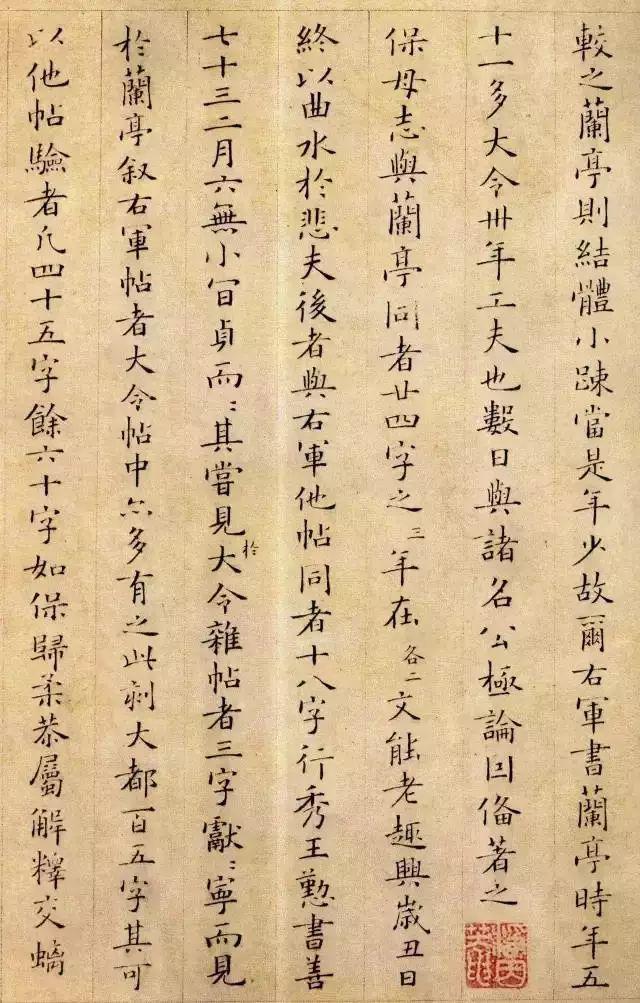 較之蘭亭則結體小踈當是年少故爾右軍書蘭亭時年五
十一多大令卅年工夫也數日與諸名公極論囙俻著之
保母志與蘭亭同者廿四字之三年在各二文能老趣興歲丑日
終以曲水於悲夫後者與右軍他帖同者十八字行秀王懃書善
七十三二月六無小冝貞而〻其嘗見於大令雜帖者三字獻〻寧而見
於蘭亭叙右軍帖者大令帖中亦多有之此刻大都百五字其可
以他帖驗者凡四十五字餘六十字如保歸柔恭屬解釋交螭